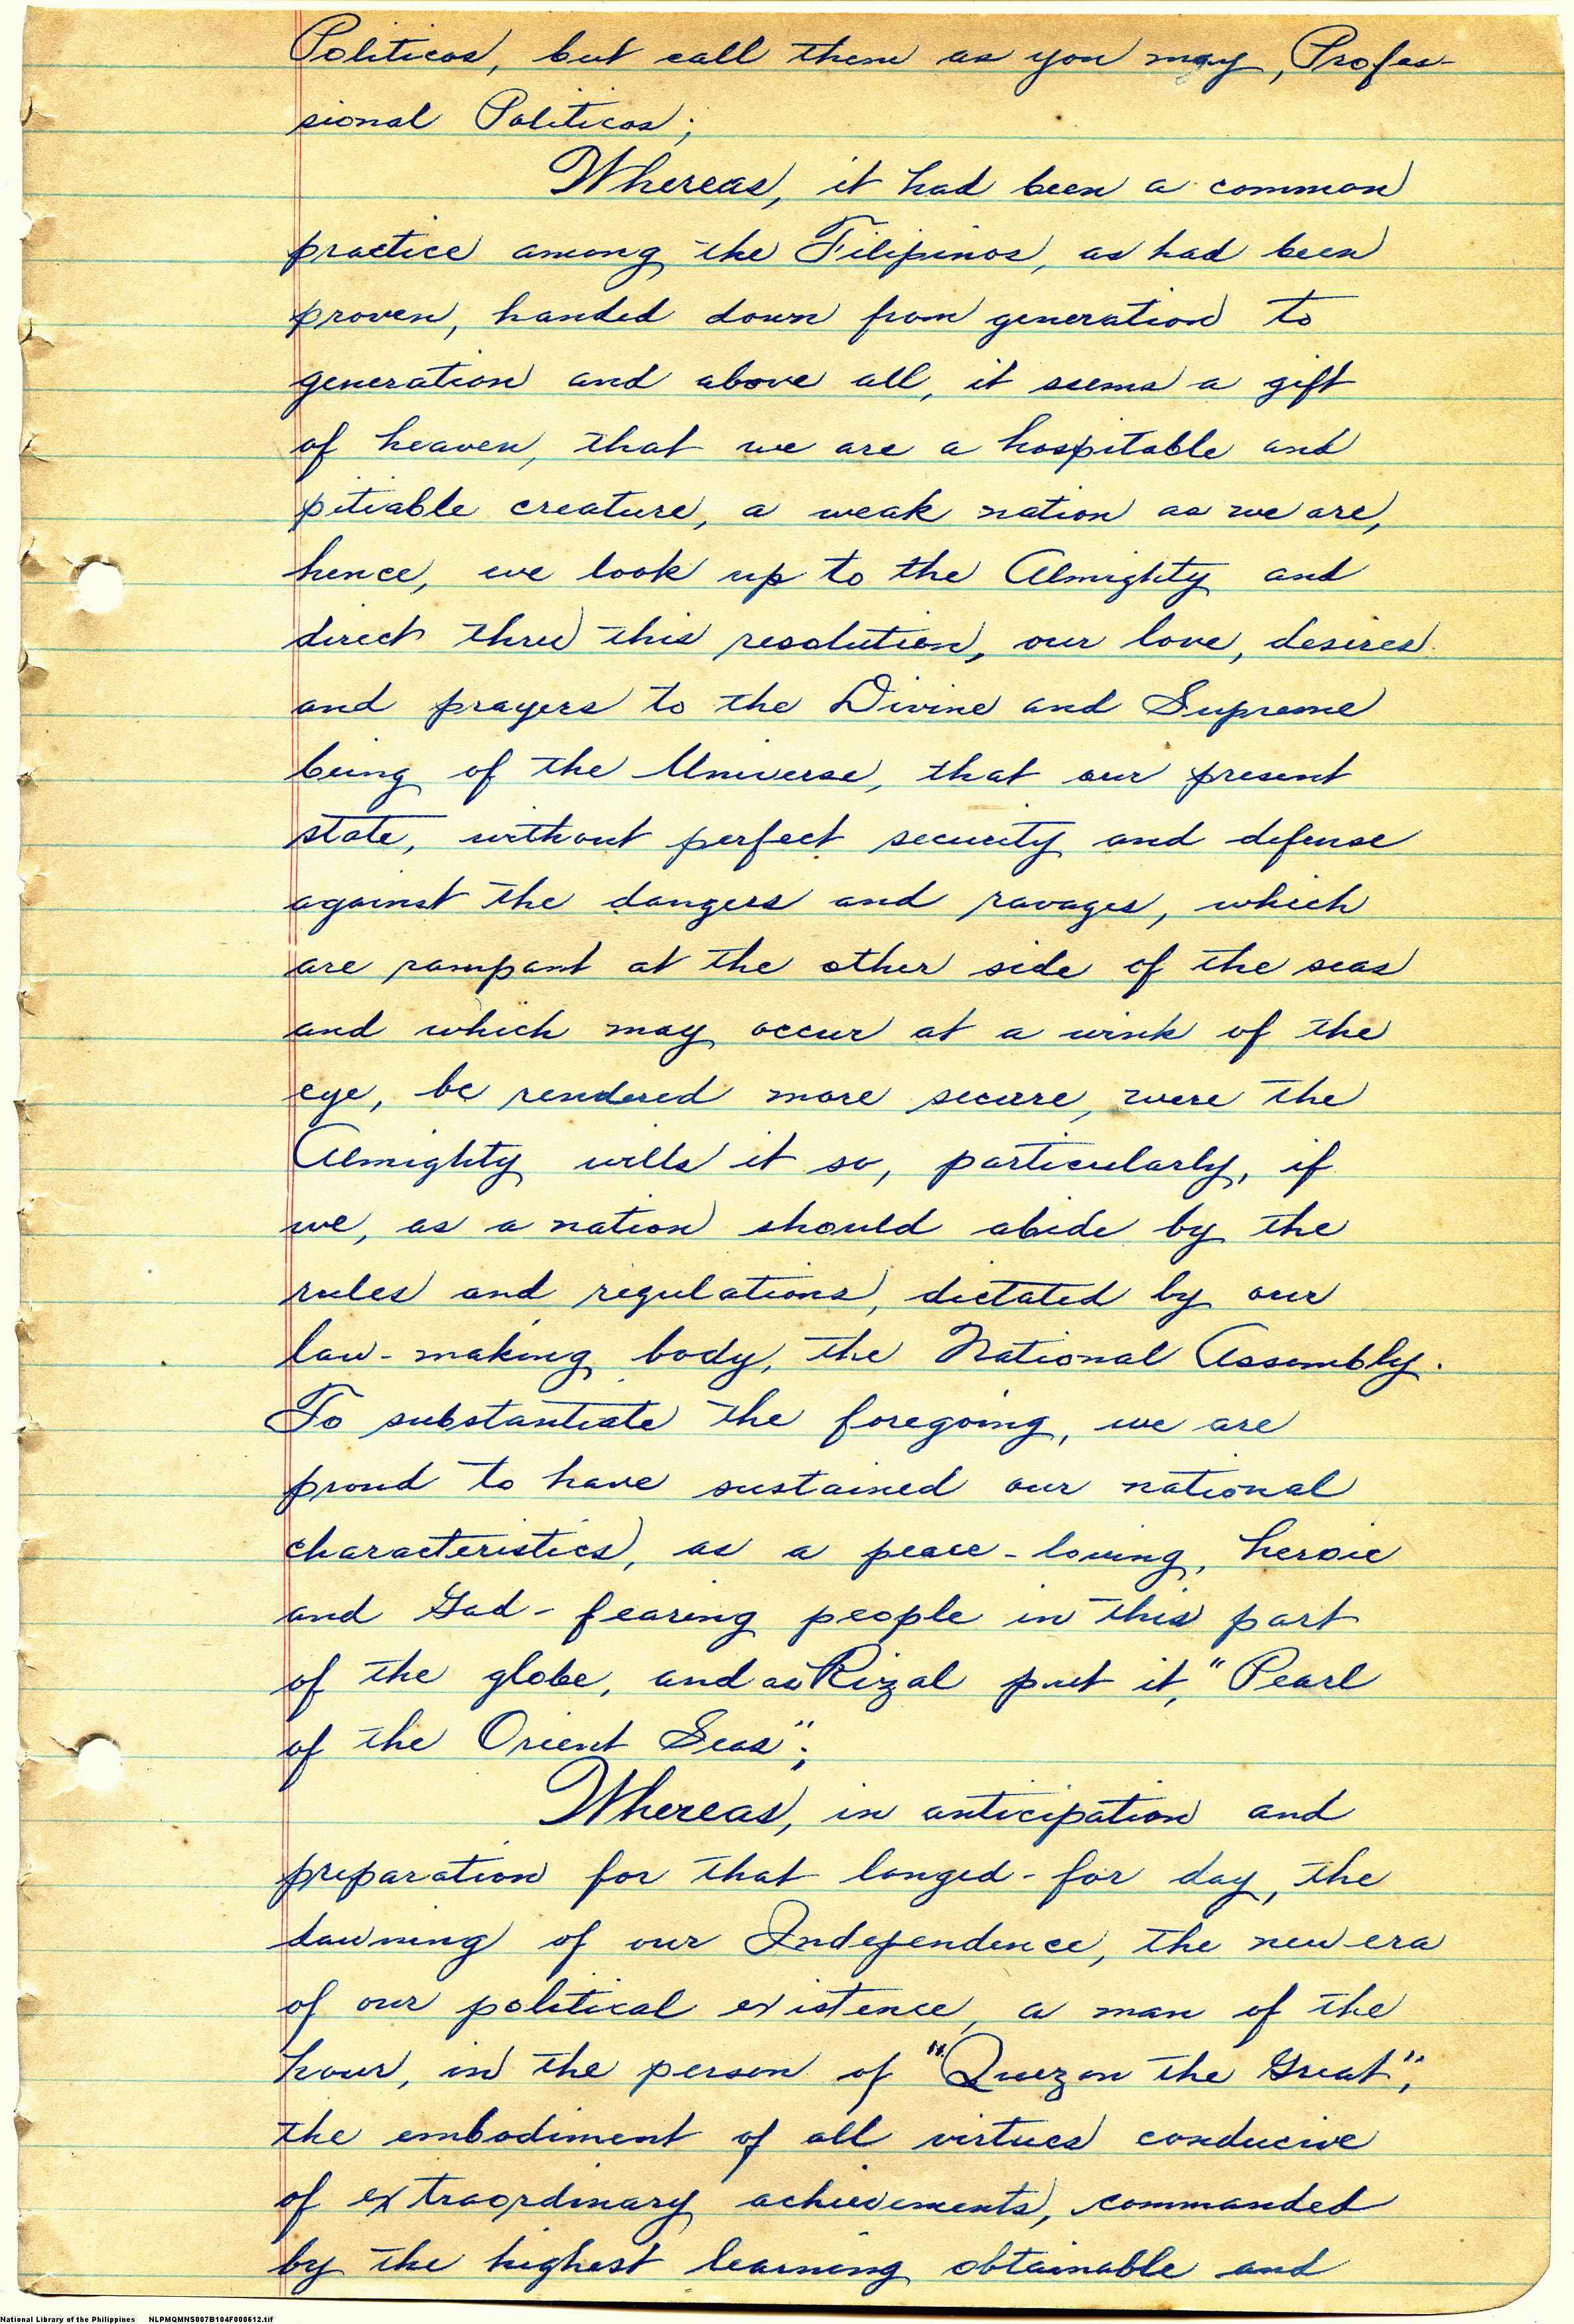 Politicos, but call them as you may, Profes-
sional Politicos;
Whereas, it had been a common
practice among the Filipinos, as had been
proven, handed down from generation to
generation and above all, it seems a gift
of heaven, that we are a hospitable and
pitiable creature, a weak nation as we are,
hence, we look up to the Almighty and
direct thru this resolution, our love, desires
and prayers to the Divine and Supreme
being of the Universe, that our present
state, without perfect security and defense
against the dangers and ravages, which
are rampant at the other side of the seas
and which may occur at a wink of the
eye, be rendered more secure, were the
Almighty wills it so, particularly, if
we, as a nation should abide by the
rules and regulations, dictated by our
law-making body, the National Assembly.
To substantiate the foregoing, we are
proud to have sustained our national
characteristics, as a peace-loving, heroic
and God-fearing people in this part
of the globe, and as Rizal put it, "Pearl
of the Orient Seas";
Whereas, in anticipation and
preparation for that longed-for day, the
dawning of our Independence, the new era
of our political existence, a man of the
hour, in the person of "Quezon the Great",
the embodiment of all virtues conducive
of extraordinary achievements, commanded
by the highest learning obtainable and
National Library of the Philippines NLPMQMNS007B104F000612.tif